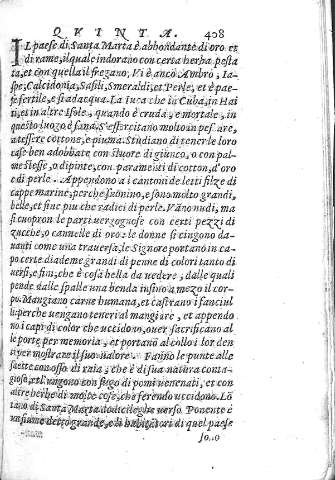 QVINTA. 408
IL paese di Santa Marta è abbondante di oro et
di rame, il quale indorano con certa herba pesta
ta, et con quella il fregano. Vi è anco Ambro, Ia-
spe, Calcidonia, Safili, Smeraldi, et Perle, et è pae-
se fertile, e si adacqua. La iuca che in Cuba, in Hai
ti, et in altre Isole, quando è cruda, e mortale, in
questo luogo è sana. S'essercitano molto in pescare,
a tessere cottone, e piuma. Studiano di tener le loro
case ben adobbate con stuore di giunco, o con pal-
me stesse, o dipinte, con paramenti di cotton, d'oro
e di perle. Appendono a i cantoni de letti filze di
cappe marine, perche suonino, e sono molto grandi,
belle, et fine piu che radici di perle. Vāno nudi, ma
si cuopron le parti vergognose con certi pezzi di
zucche, o cannelle di oro: le donne si cingono da-
uanti come vna trauersa, le Signore portano in ca-
po certe diademe grandi di penne di colori tanto di
uersi, e fini, che è cosa bella da vedere, dalle quali
pende dalle spalle vna benda insino a mezo il cor-
po. Mangiano carne humana, et castrano i fanciul
li perche uengano teneri al mangiare, et appendo
no i capi di color che uccidono, ouer sacrificano al
le porte per memoria, et portano al collo i lor den
ti per mostrare il suo ualore. Fanno le punte alle
saette con osso di raia, che è di sua natura conta-
giosa, et l'ungono con sugo di pomi uenenati, et con
altre herbe di molte cose, che ferendo uccidono. Lō
tano di Santa Marta dodici leghe verso Ponente è
un fiume detto grande, e li habitatori di quel paese